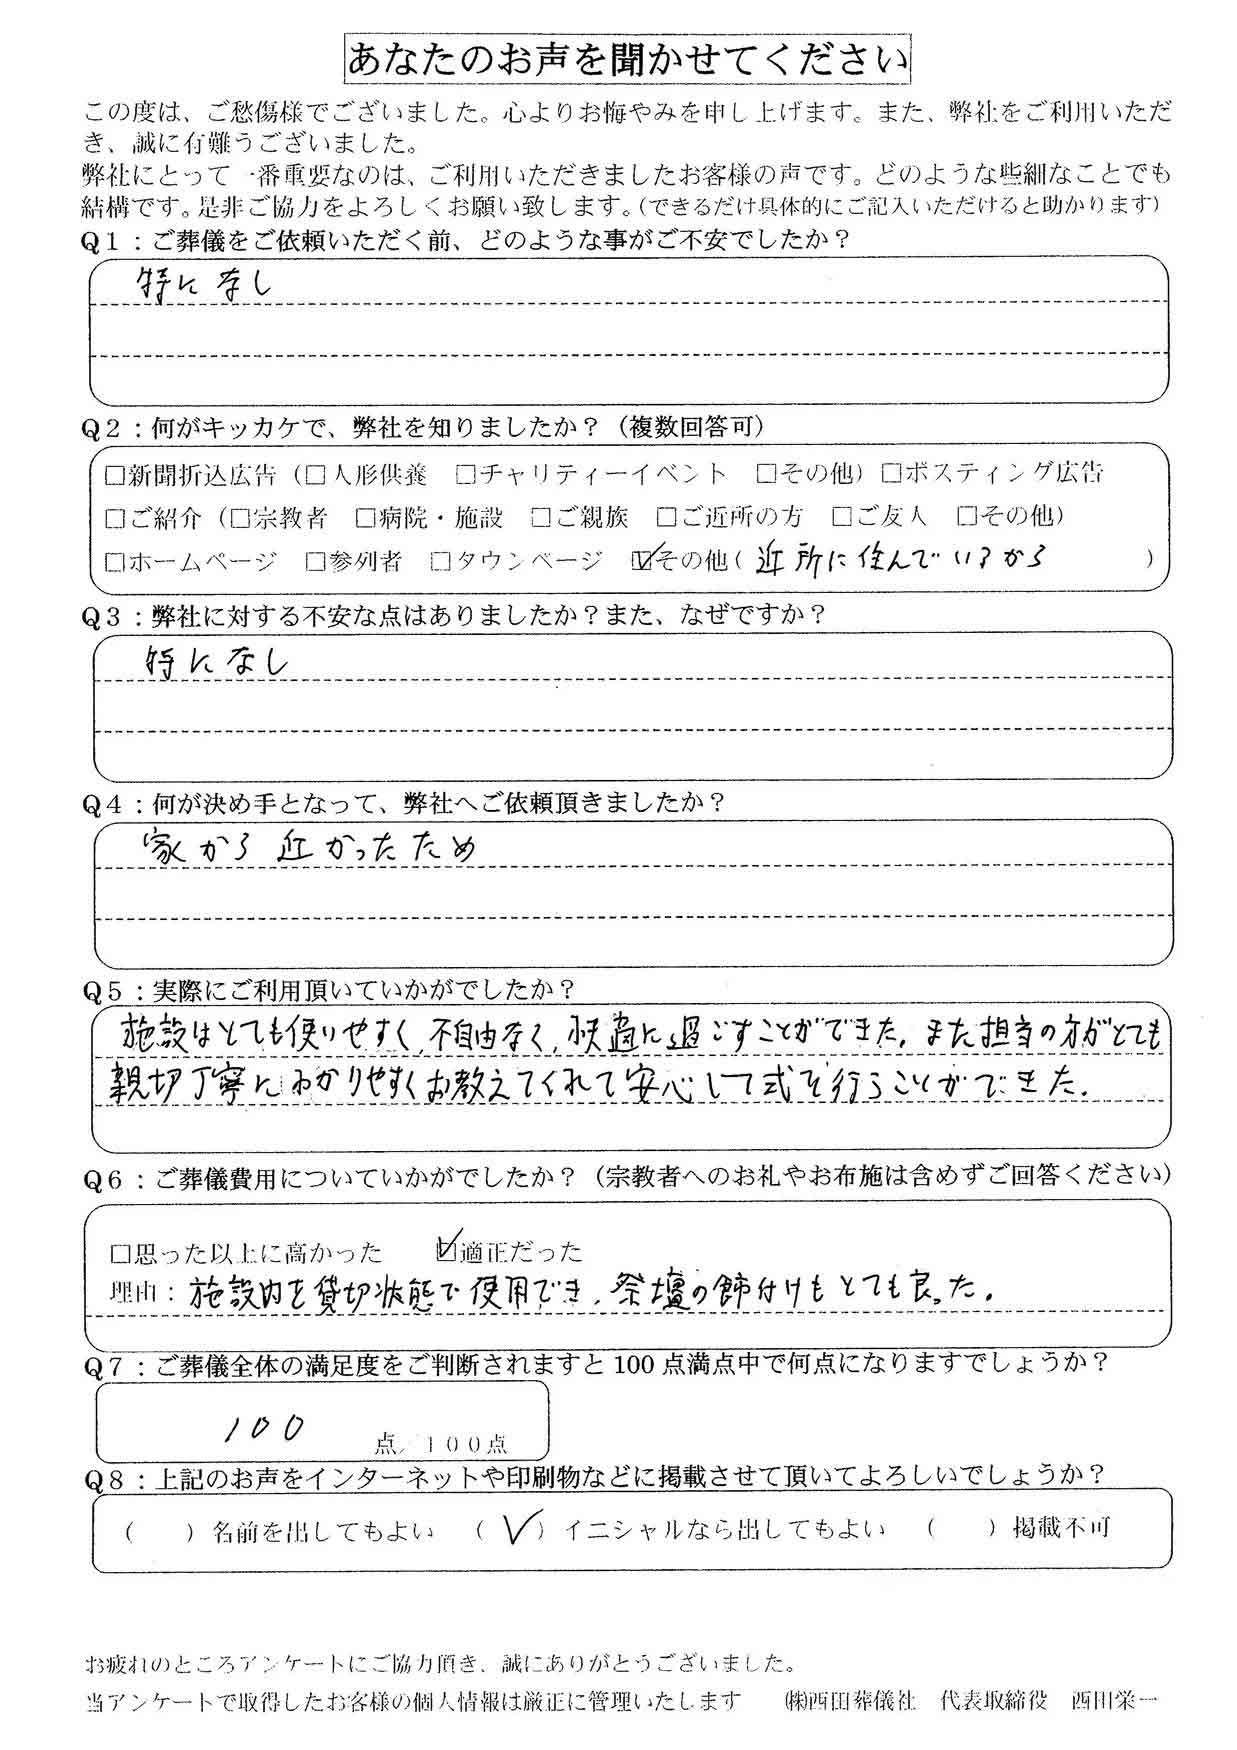 あなたのお声を聞かせてください
この度は、ご愁傷様でございました。心よりお悔やみを申し上げます。また、弊社をご利用いただ
き、誠に有難うございました。
弊社にとって一番重要なのは、ご利用いただきましたお客様の声です。どのような些細なことでも
結構です。是非ご協力をよろしくお願い致します。（できるだけ具体的にご記入いただけると助かります）
Q1：ご葬儀をご依頼いただく前、どのような事がご不安でしたか？
特になし
Q2：何がキッカケで、弊社を知りましたか？（複数回答可）
□新聞折込広告（□人形供養　□チャリティーイベント　□その他）□ポスティング広告
□ご紹介（□宗教者　□病院・施設　□ご親族　□ご近所の方　□ご友人　□その他）
□ホームページ　□参列者　□タウンページ　☑その他（近所に住んでいるから　）
Q3：弊社に対する不安な点はありましたか？また、なぜですか？
特になし
Q4：何が決め手となって、弊社へご依頼頂きましたか？
家から近かったため
Q5：実際にご利用頂いていかがでしたか？
施設はとても使いやすく、不自由なく、快適に過ごすことができた。また担当の方がとても
親切丁寧にわかりやすくお教えてくれて安心して式を行うことができた。
Q6：ご葬儀費用についていかがでしたか？（宗教者へのお礼やお布施は含めずご回答ください）
□思った以上に高かった　☑適正だった
理由：施設内を貸切状態で使用でき、祭壇の飾付けもとても良った。
Q7：ご葬儀全体の満足度をご判断されますと100点満点中で何点になりますでしょうか？
100　点／100点
Q8：上記のお声をインターネットや印刷物などに掲載させて頂いてよろしいでしょうか？
（　）名前を出してもよい　（✓）イニシャルなら出してもよい　（　）掲載不可
お疲れのところアンケートにご協力頂き、誠にありがとうございました。
当アンケートで取得したお客様の個人情報は厳正に管理いたします　㈱西田葬儀社　代表取締役　西田栄一